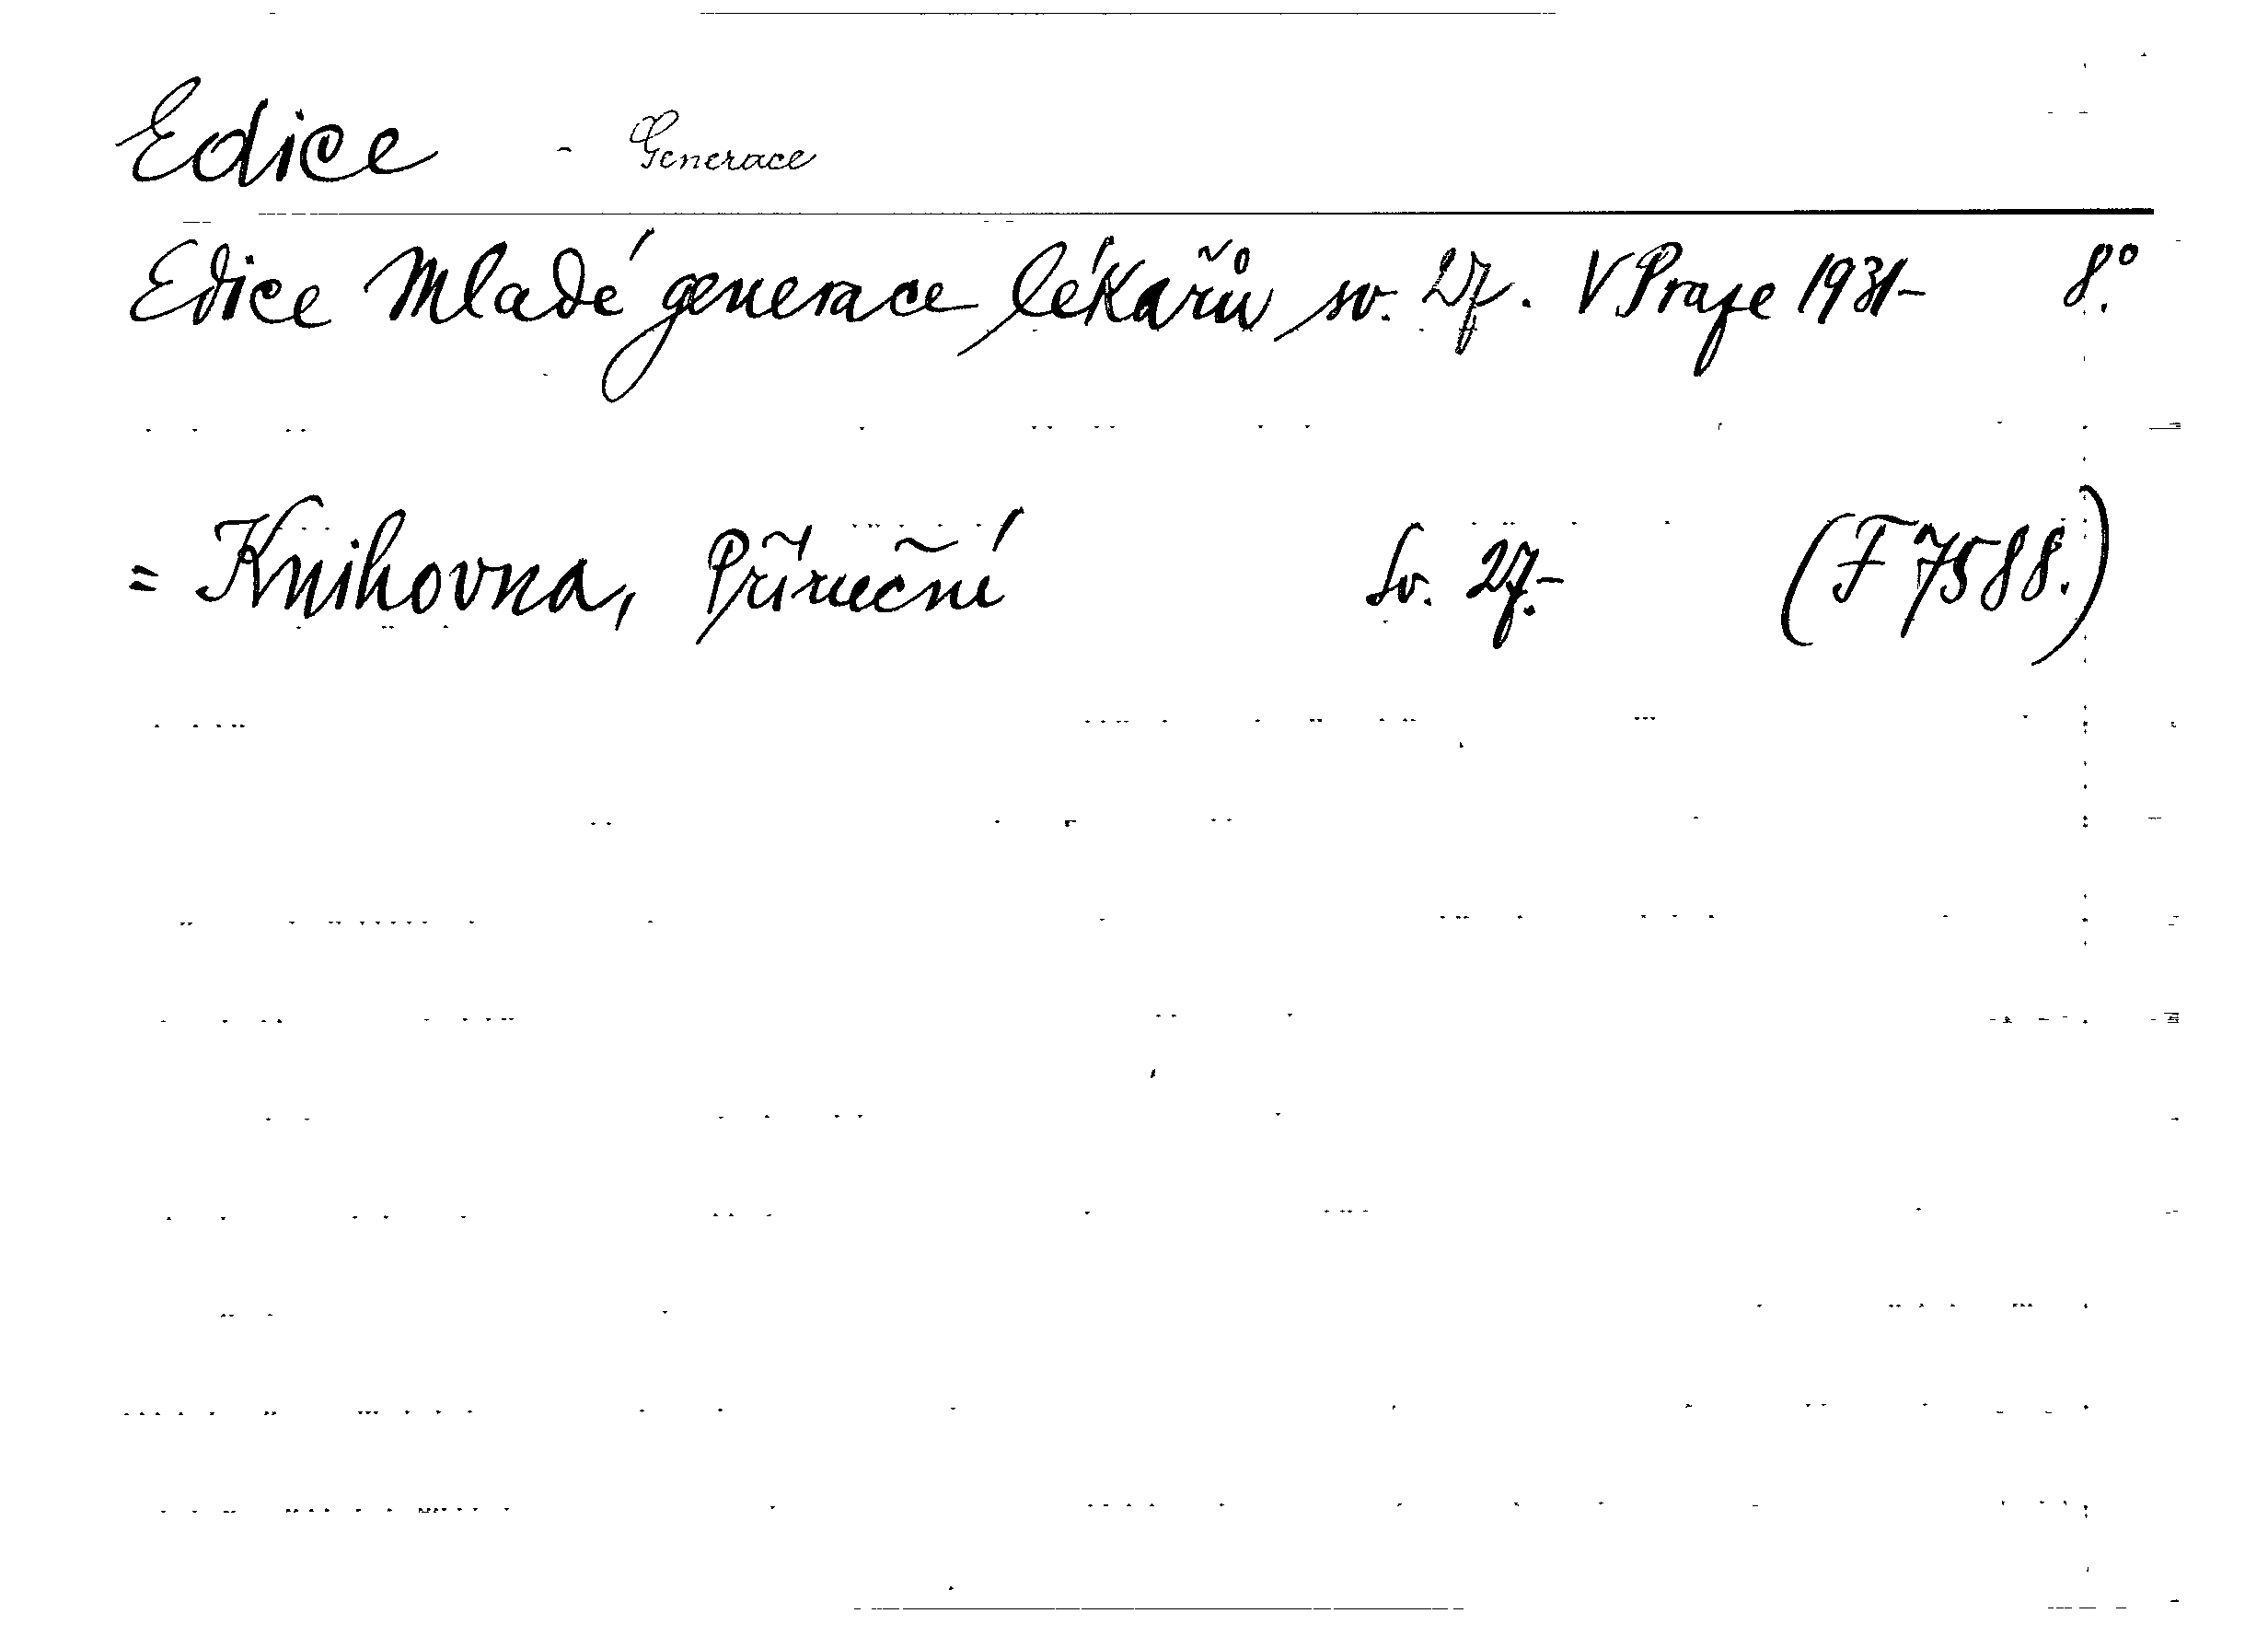 Edice - Generace
Edice Mladé generace lékařů sv. 27. V Praze 1931- 8.°
= Knihovna, Příruční Sv. 27.- (F 7588.)